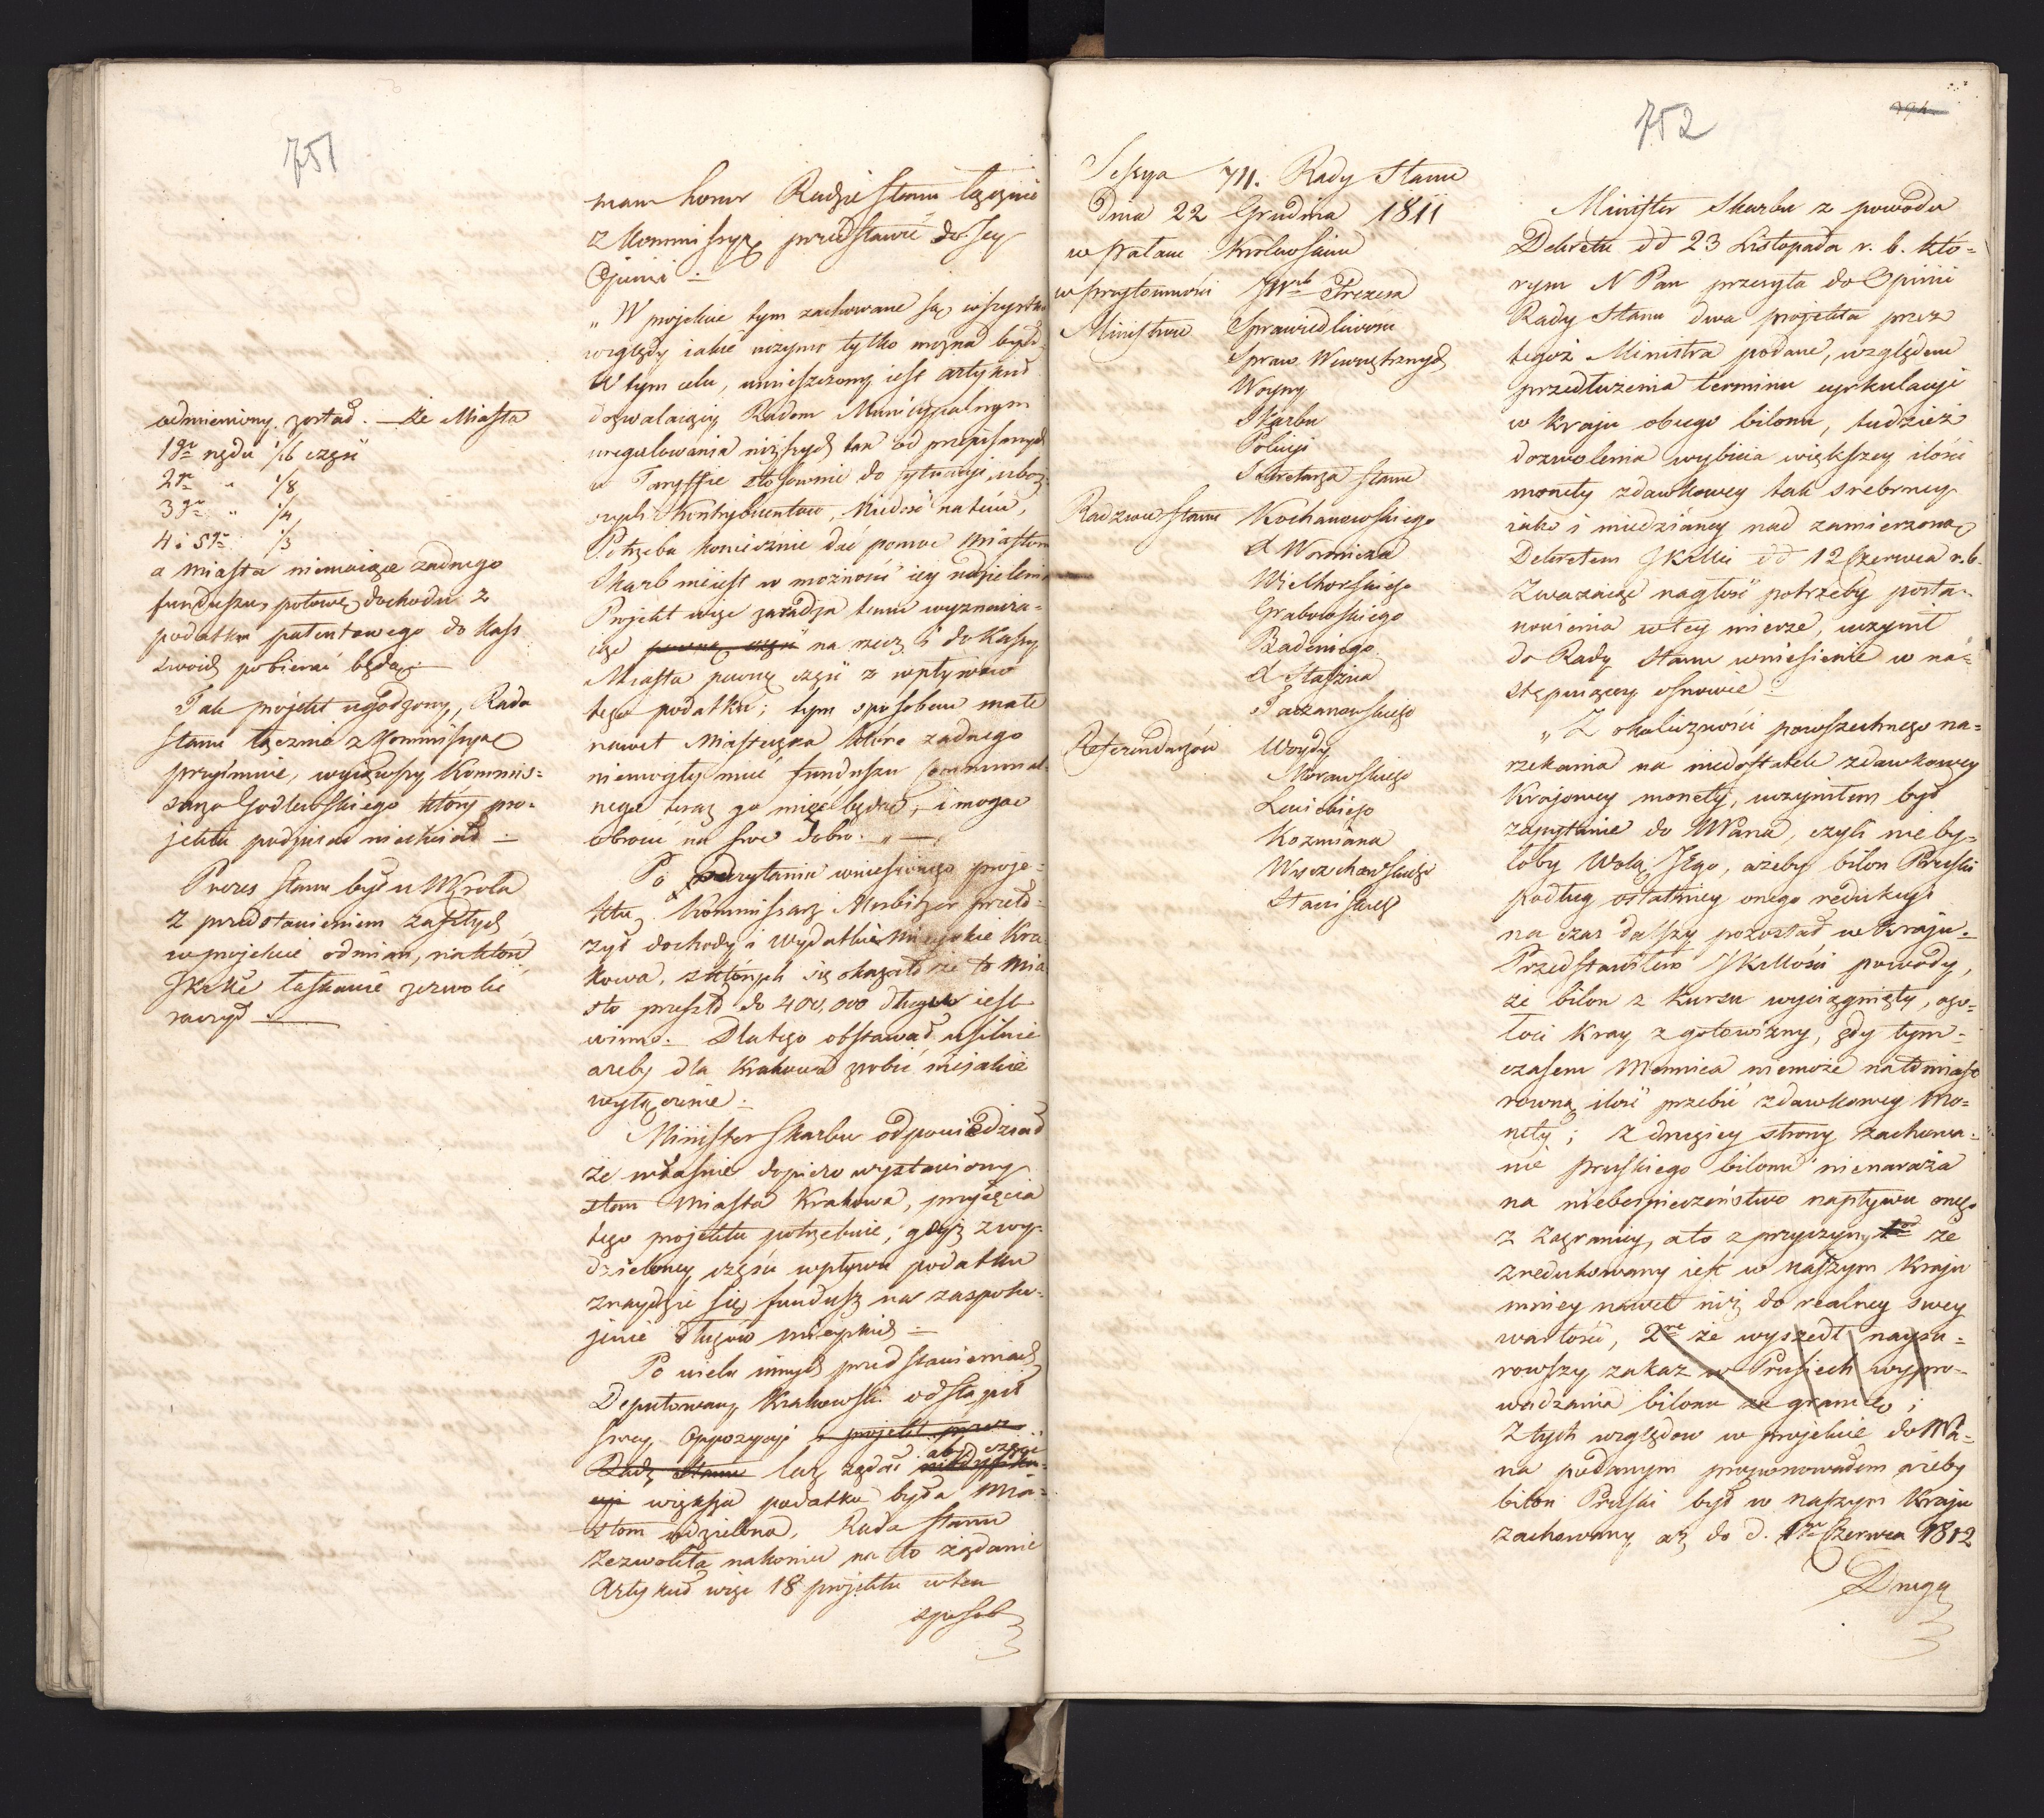 751
mam honor Radzie Stanu łącznie
z Kommissyą przedstawić do Jey
Opinii. –
„W projekcie tym zachowane są wszystkie
względy iakie uczynić tylko można było
W tym celu, umieszczony iest artykuł
dozwalaiący Radom Municypalnym
uregulowania niższych tax od przepisanych
w Taryffie stosownie do sytuacyi uboż-
szych kontrybuentów. Nie dość na tém,
Potrzeba koniecznie dać pomoc Miastom
Skarb nie iest w możności iey udzielenia
Projekt więc zaradza temu wyznacza-
iąc pewną część na rzecz i do Kassy
Miasta pewną część z wpływów
tego podatku; tym sposobem małe
nawet Miasteczka które żadnego
niemogły mieć funduszu communal-
nego teraz go mieć będą, i mogąc
obrócić na swe dobro. „ –
Po odczytaniu wniesionego proje-
ktu, Kommissarz Morbitzer przeło-
żył dochody i wydatki Mieyskie Kra-
kowa, z których się okazało że to Mia-
sto przeszło do 400,000 długu iest
winno. Dla tego obstawał usilnie
ażeby dla Krakowa zrobić iakie
wyłączenie. –
Minister Skarbu odpowiedział
że właśnie dopiero wystawiony
stan Miasta Krakowa, przyięcia
tego projektu potrzebuie, gdyż z wy-
dzieloney części wpływu podatku
znaydzie się fundusz na zaspoko-
jenie długów mieyskich –
Po wielu innych przedstawieniach
Deputowany Krakowski odstąpił
swey Oppozycyi i projekt przez
Radę Stanu lecz żądał aby część
większa podatku była Mia-
stom udzielona, Rada Stanu
zezwoliła nakoniec na to żądanie
Artykuł więc 18 projektu w ten
sposób
odmieniony został. – że Miasta
1go rzędu 1/16 część
2go „ 1/8
3go „ 1/4
4 i 5go 1/3
a Miasta niemaiące żadnego
funduszu, połowę dochodu z
podatku patentowego do Kass
swoich pobierać będą. –
Tak projekt ugodzony, Rada
Stanu łącznie z Kommissyą
przyimuie, wyiąwszy Kommis-
sarza Godlewskiego który pro-
jektu podpisać niechciał –
Prezes Stanu był u Króla
z przedstawieniem zaszłych
w projekcie odmian, na które
JKMć łaskawie zezwolić
raczył –
752
Sessya 711. Rady Stanu
Dnia 22 Grudnia 1811
w Pałacu Królewskim
w przytomności JWgo Prezesa
Ministrów Sprawiedliwości
Spraw Wewnętrznych
Woyny
Skarbu
Policyi
Sekretarza Stanu
Radzców Stanu Kochanowskiego
Woronicza
Wielhorskiego
Grabowskiego
Badeniego
Staszica
Taczanowskiego
Referendarzów Woydy
Morawskiego
Lewickiego
Kozmiana
Wyczechowskiego
Minister Skarbu z powodu
Dekretu dd 23 Listopada r. b. któ-
rym N Pan przesyła do Opinii
Rady Stanu dwa projekta przez
tegoż Ministra podane, względem
przedłużenia terminu cyrkulacyi
w kraju obcego bilonu, tudzież
dozwolenia wybicia większey ilości
monety zdawkowey tak srebrney
iako i miedzianey nad zamierzoną
Dekretem JKMci dd 12 Czerwca r. b.
Zważaiąc nagłość potrzeby posta-
nowienia w tey mierze, uczynił
do Rady Stanu wniesienie w na-
stępuiącey osnowie –
„Z okoliczności powszechnego na-
rzekania na niedostatek zdawkowey
krajowey monety, uczyniłem był
zapytanie do NPana, czyli nie by-
łoby Wolą Jego, ażeby bilon Pruski
podług ostatniey onego redukcyi
na czas dalszy pozostał w kraju. –
Przedstawiłem JKMości powody,
że bilon z kursu wyciągnięty, ogo-
łoci kray z gotowizny, gdy tym-
czasem Mennica niemoże natomiast
równą ilość przebić zdawkowey mo-
nety; z drugiey strony zachowa-
nie pruskiego bilonu nienaraża
na niebespieczeństwo napływu onego
z zagranicy, a to z przyczyny 1od że
zredukowany iest w naszym kraju
mniey nawet niż do realney swey
wartości, 2re że wyszedł naysu-
rowszy zakaz w Prusiech wypro-
wadzania bilonu za granicę;
Z tych względów w projekcie do NPa-
na podanym proponowałem ażeby
bilon Pruski był w naszym kraju
zachowany aż do d. 1go Czerwca 1812
Drugą